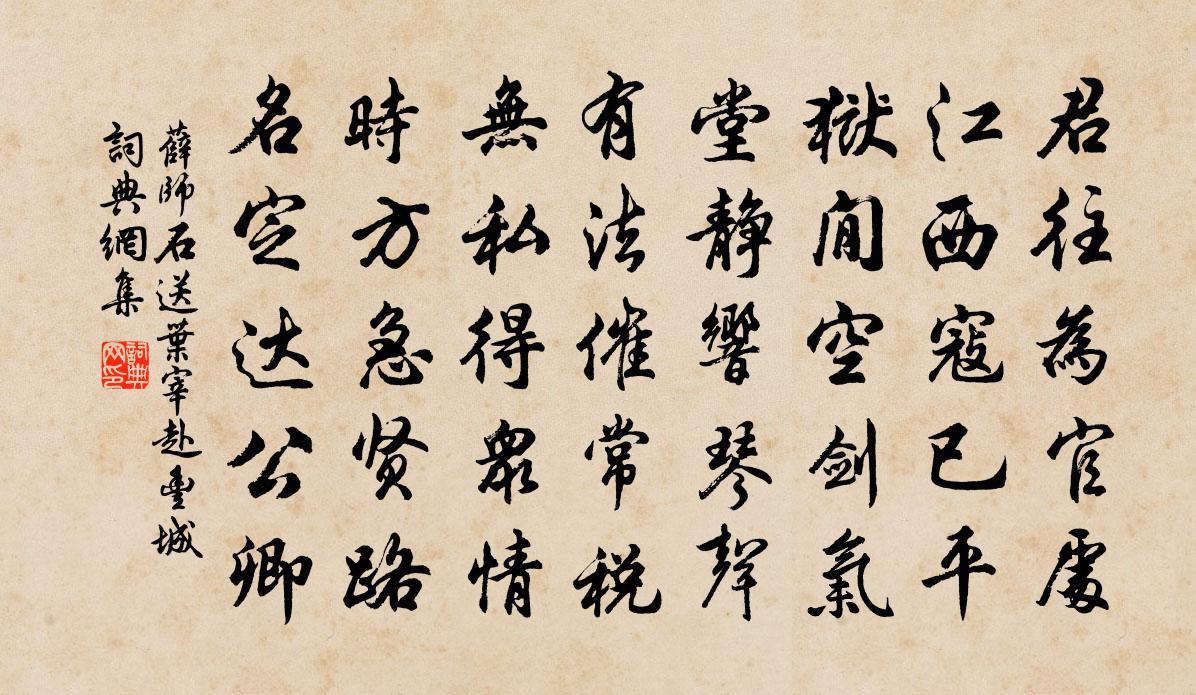 君往為官處
江西寇已平
獄间空剑氣
堂静響琴聲
有法催常税
無私得衆情
時方急贤路
名定达公卿
薛師石送葉宰赴豊城
詞典網集
詞典网印